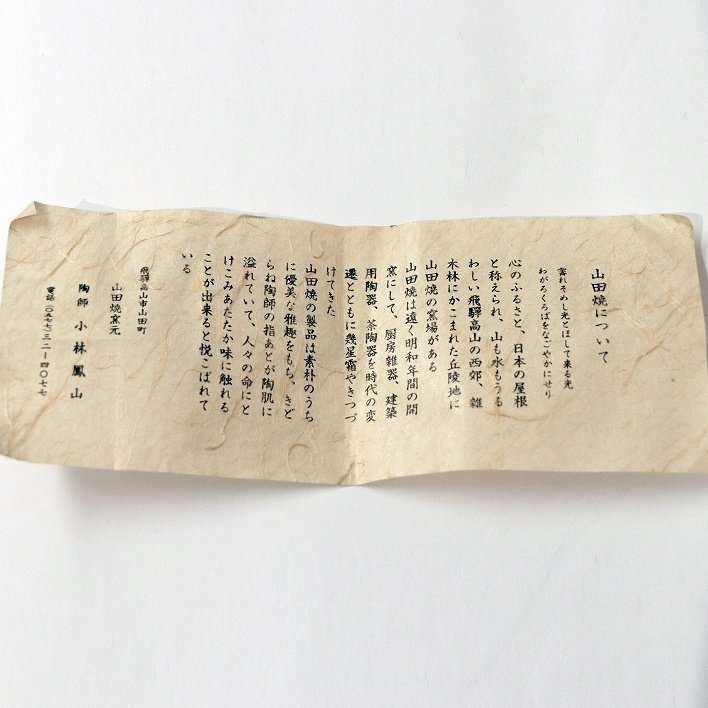 山田焼について
窯れそめし光とほして来る光
わがろくろばをなごやかにせり
心のふるさと、日本の屋根
と称えられ、山も水もうる
わしい飛驒高山の西郊、雑
木林にかこまれた丘陵地に
山田焼の窯場がある
山田焼は遠く明和年間の開
窯にして、厨房雑器、建築
用陶器、茶陶器を時代の変
遷とともに幾星霜やきつづ
けてきた
山田焼の製品は素朴のうち
に優美な雅趣をもち、きど
らね陶師の指あとが陶肌に
溢れていて、人々の命にと
けこみあたたか味に触れる
ことが出来ると悦こばれて
いる
飛驒高山市山田町
山田焼窯元
陶師 小林鳳山
電話(〇五七七)三二ー四〇七七